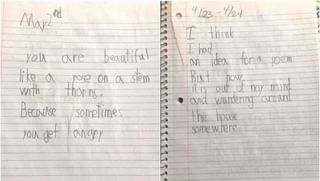 Mar 2nd
you are beautiful
like a rose on a stem
with thorns.
Because sometimes
you get angry
4/23 - 4/24
I think
I had
an idea for a poem
But now
it's out of my mind
and wandering around
the house
somewhere